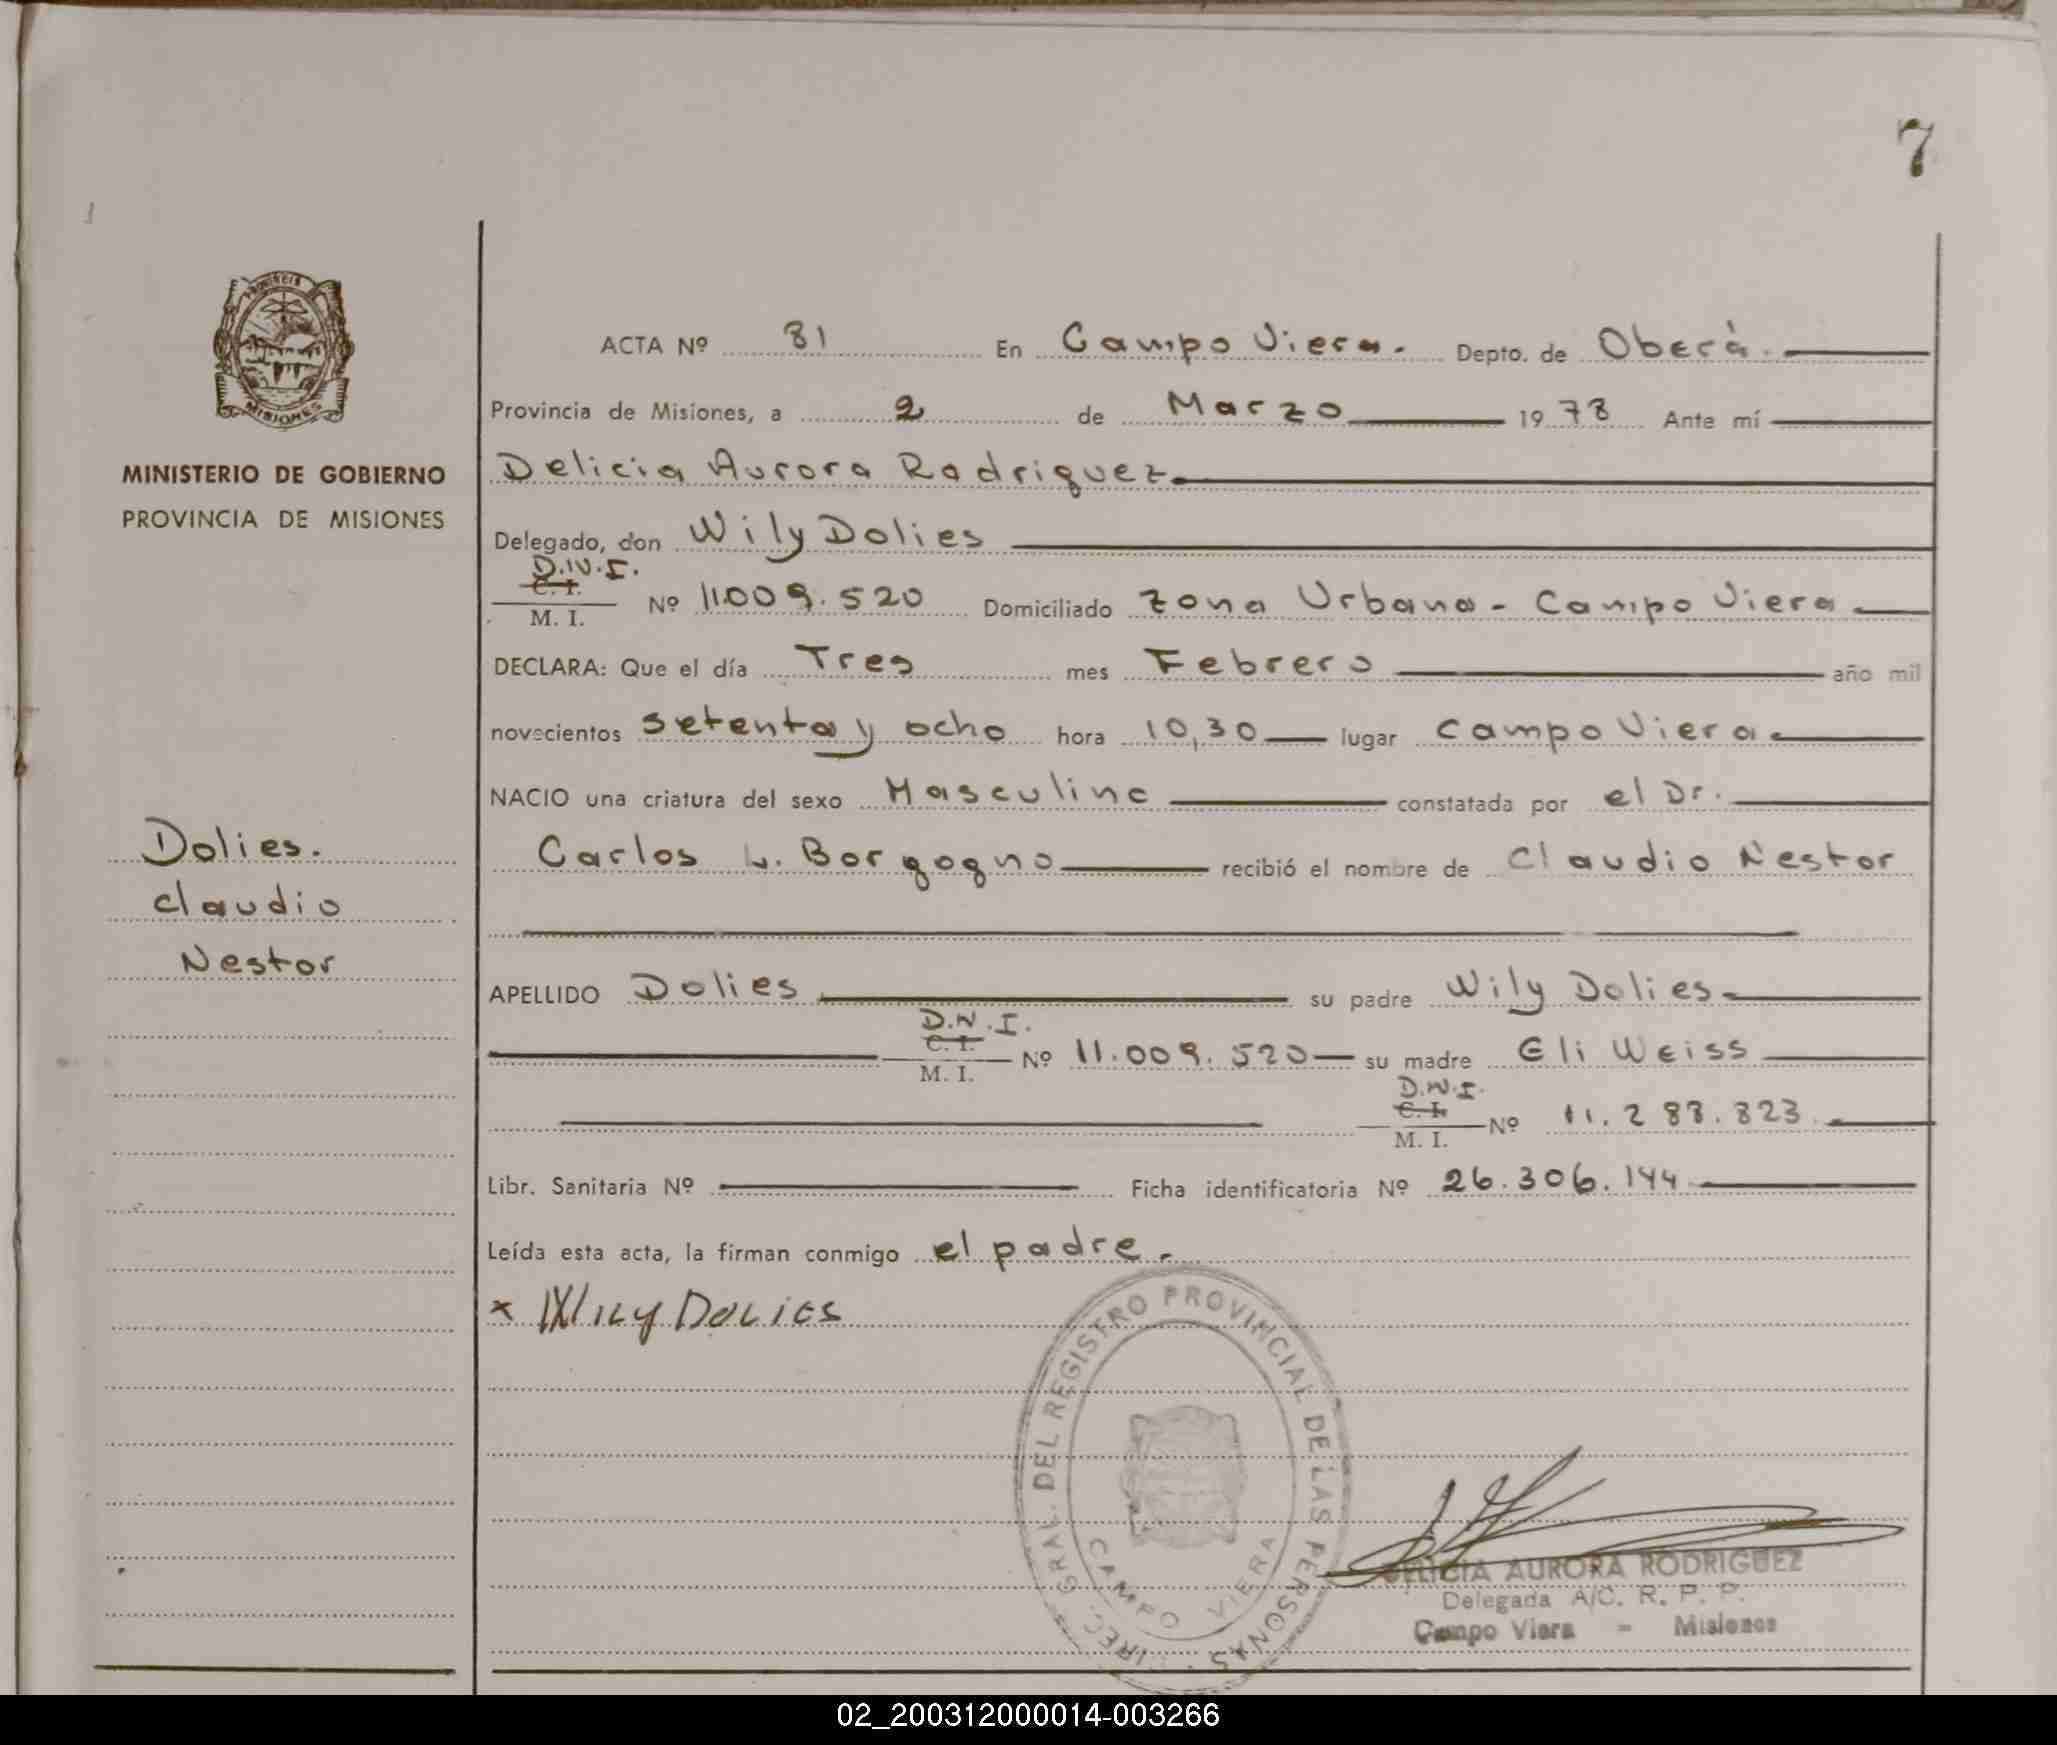 7
PROVINCIA
MISIONES
MINISTERIO DE GOBIERNO
PROVINCIA DE MISIONES
Dolies.
Claudio
Nestor
ACTA Nº 81 En Campo Viera. Depto. de Oberá.
Provincia de Misiones, a 2 de Marzo 1978 Ante mí
Delicia Aurora Rodriguez
Delegado, don Wily Dolies
D.N.I.
C. I.
M. I. Nº 11.009.520 Domiciliado Zona Urbana - Campo Viera
DECLARA: Que el día Tres mes Febrero año mil
novecientos setenta y ocho hora 10,30 lugar Campo Viera
NACIO una criatura del sexo Masculino constatada por el Dr.
Carlos L. Borgogno recibió el nombre de Claudio Nestor
APELLIDO Dolies su padre Wily Dolies
D.N.I.
C. I.
M. I. Nº 11.009.520 su madre Eli Weiss
D.N.I.
C. I.
M. I. Nº 11.288.823
Libr. Sanitaria Nº Ficha identificatoria Nº 26.306.144
Leída esta acta, la firman conmigo el padre.
x Wily Dolies
DIREC. GRAL. DEL REGISTRO PROVINCIAL DE LAS PERSONAS
CAMPO VIERA
DELICIA AURORA RODRIGUEZ
Delegada A/C. R. P. P.
Campo Viera - Misiones
02_200312000014-003266